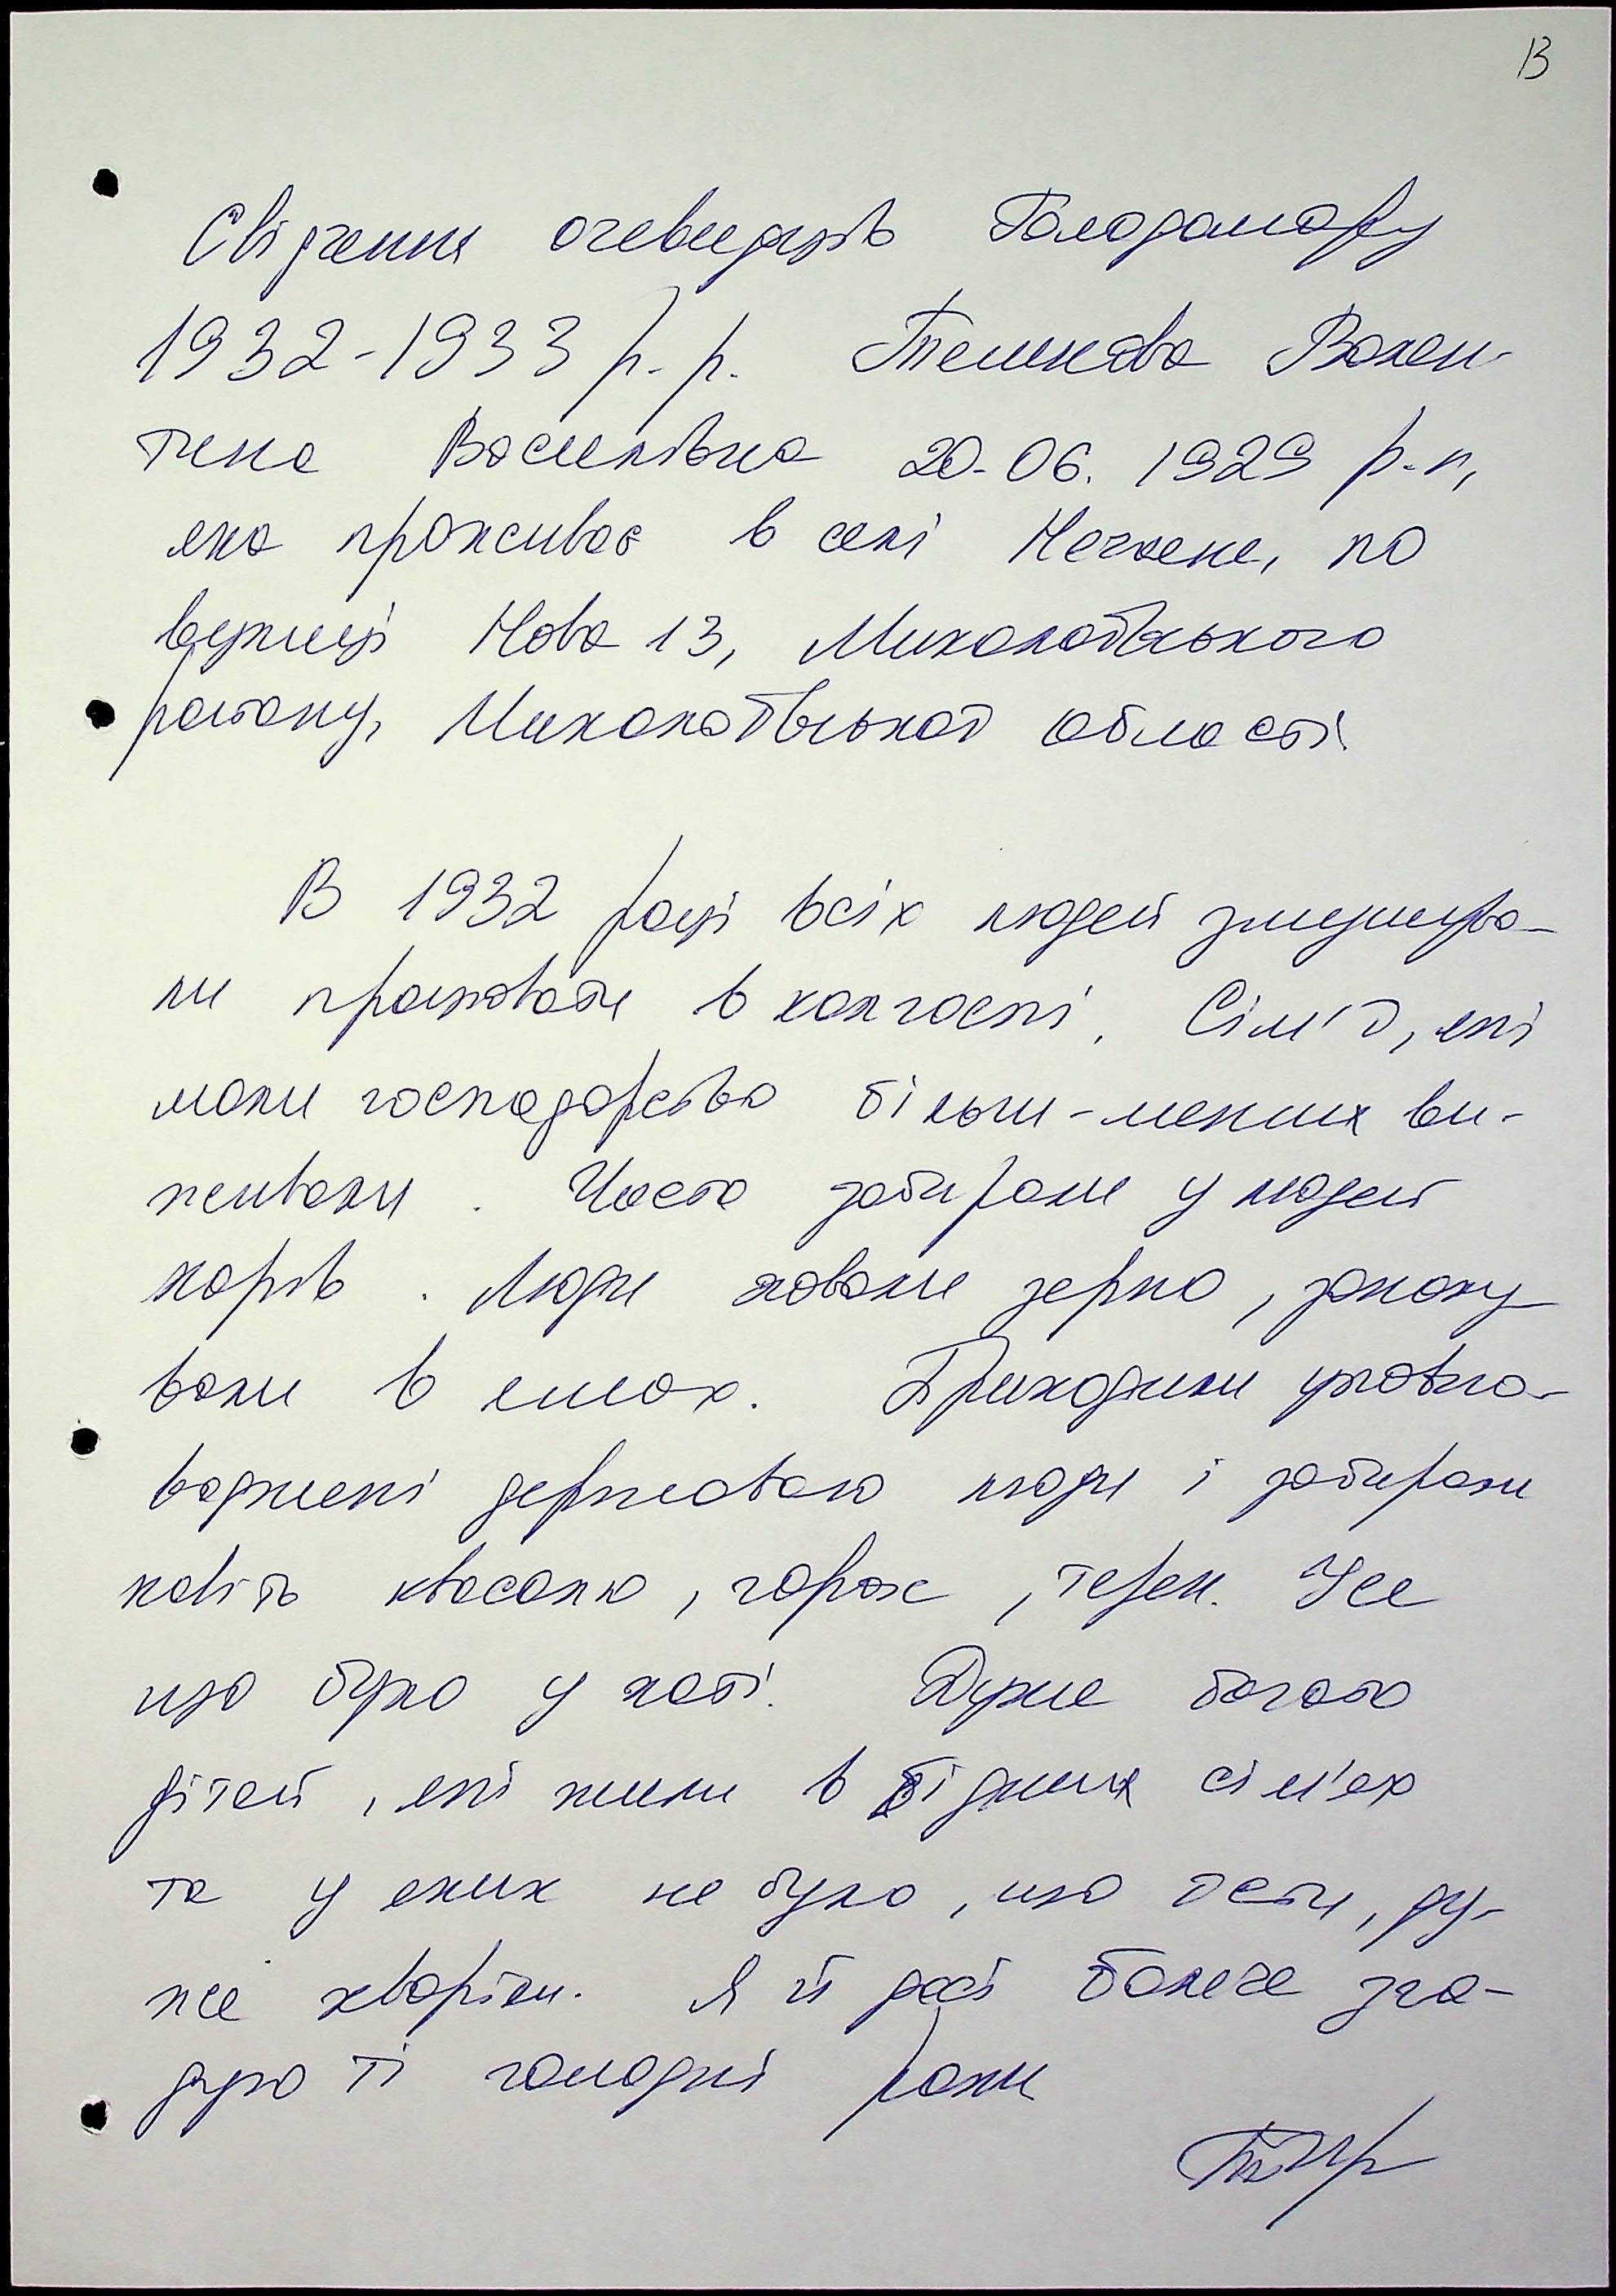 13
Свідчення очевидців Голодомору
1932-1933 р.р. Темнєва Вален-
тина Василівна 20.06.1929 р.н,
яка проживає в селі Нечаяне, по
вулиці Нова 13, Миколаївського
району, Миколаївської області.
В 1932 році всіх людей змушува-
ли працювати в колгоспі. Сім'ї, які
мали господарство більш-менш ви-
живали. Часто забирали у людей
корів. Люди ховали зерно, закопу
вали в ямах. Приходили уповно-
важені державою люди і забирали
навіть квасолю, горох, терен. Усе
що було у хаті. Дуже багато
дітей, які жили в бідних сім'ях
та у яких не було, що їсти, ду-
же хворіли. Я й досі боляче зга-
дую ті голодні роки